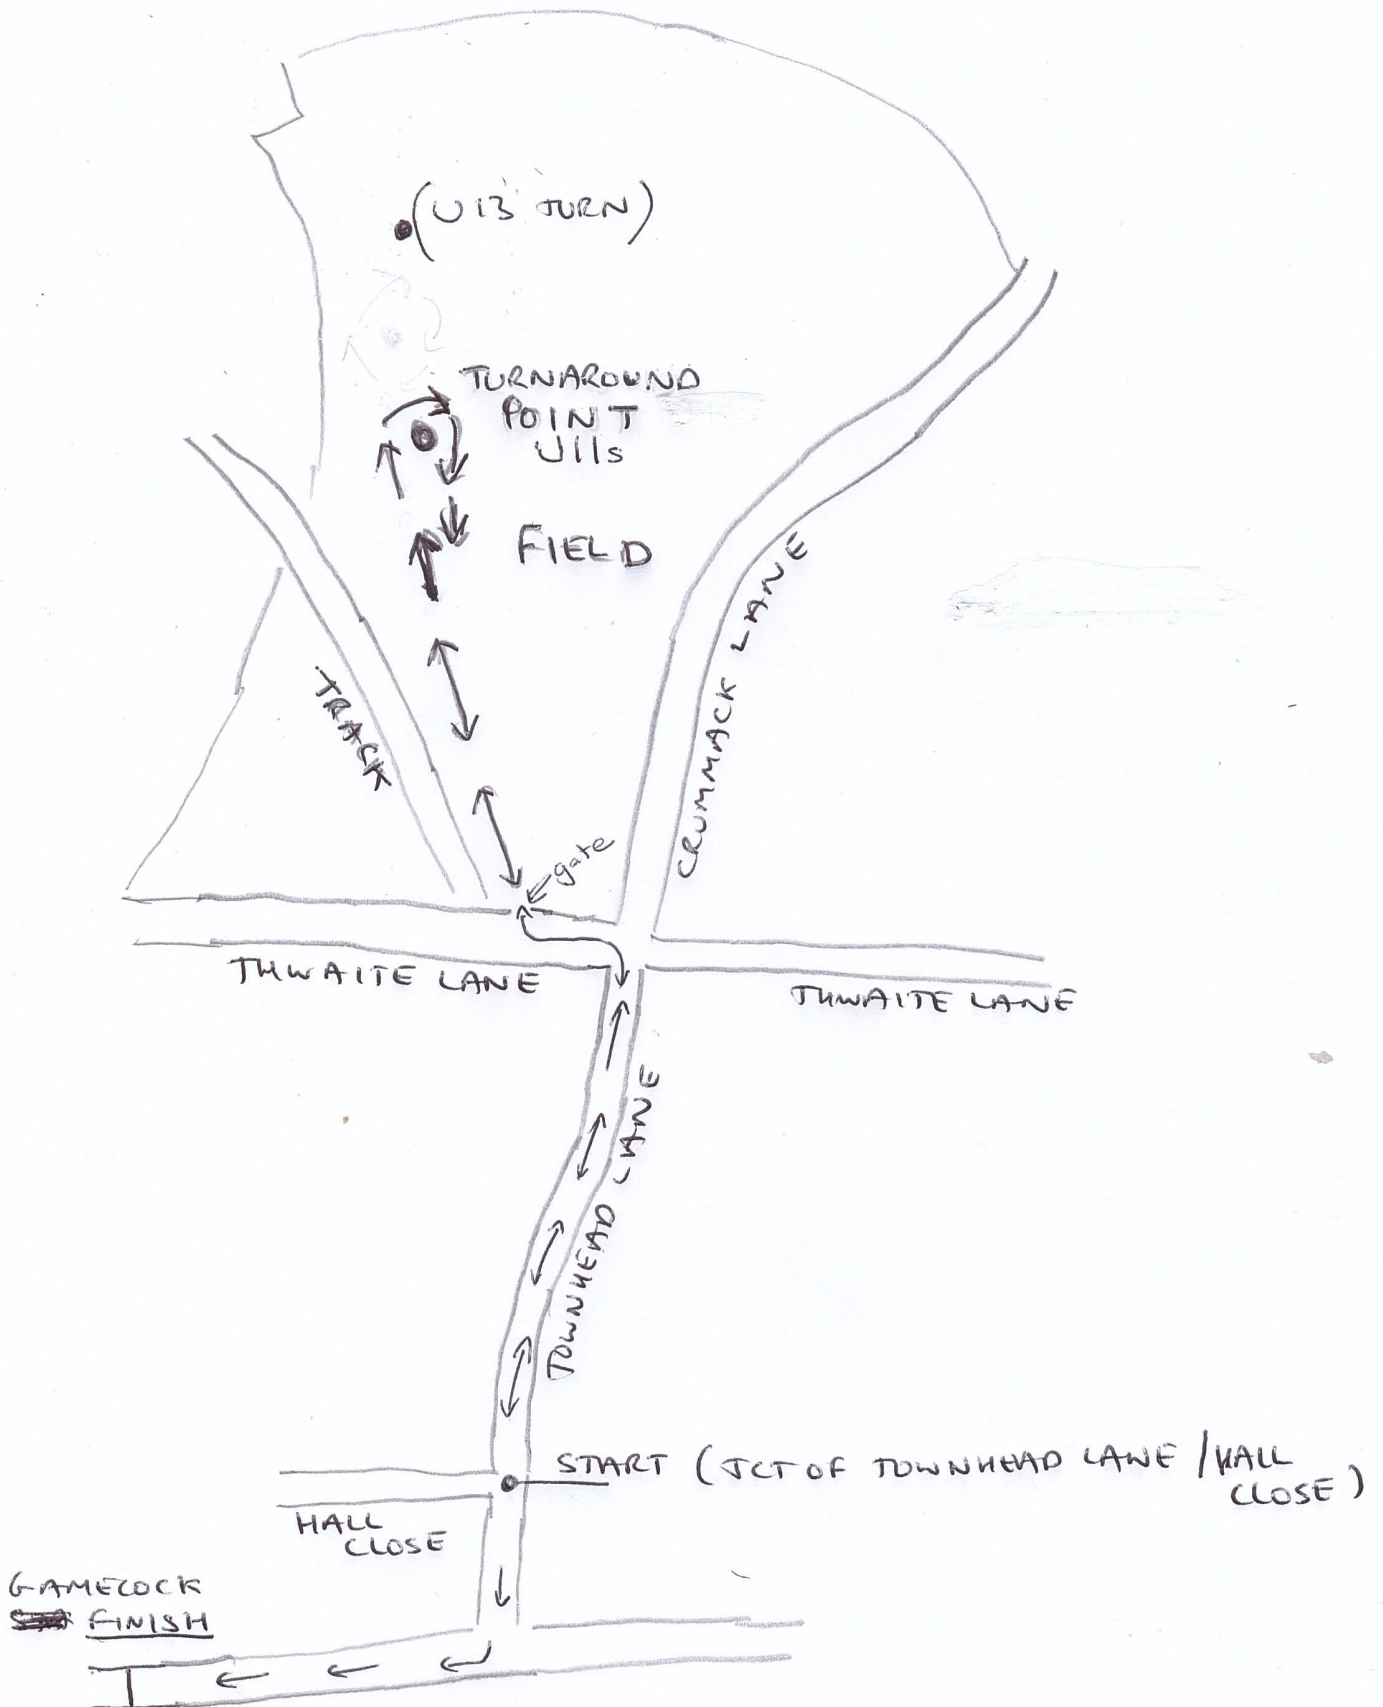 (U13 TURN)
TURNAROUND
POINT
U11s
FIELD
TRACK
CRUMMACK LANE
gate
THWAITE LANE
THWAITE LANE
TOWNHEAD LANE
START (JCT OF TOWNHEAD LANE / HALL
CLOSE)
HALL
CLOSE
GAMECOCK
FINISH